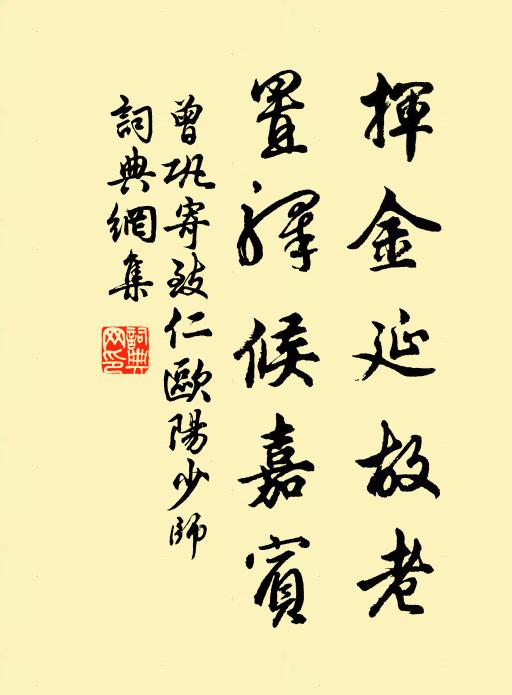 揮金延故老
置驛候嘉賓
曾巩寄致仁歐陽少師
詞典網集
詞典网印